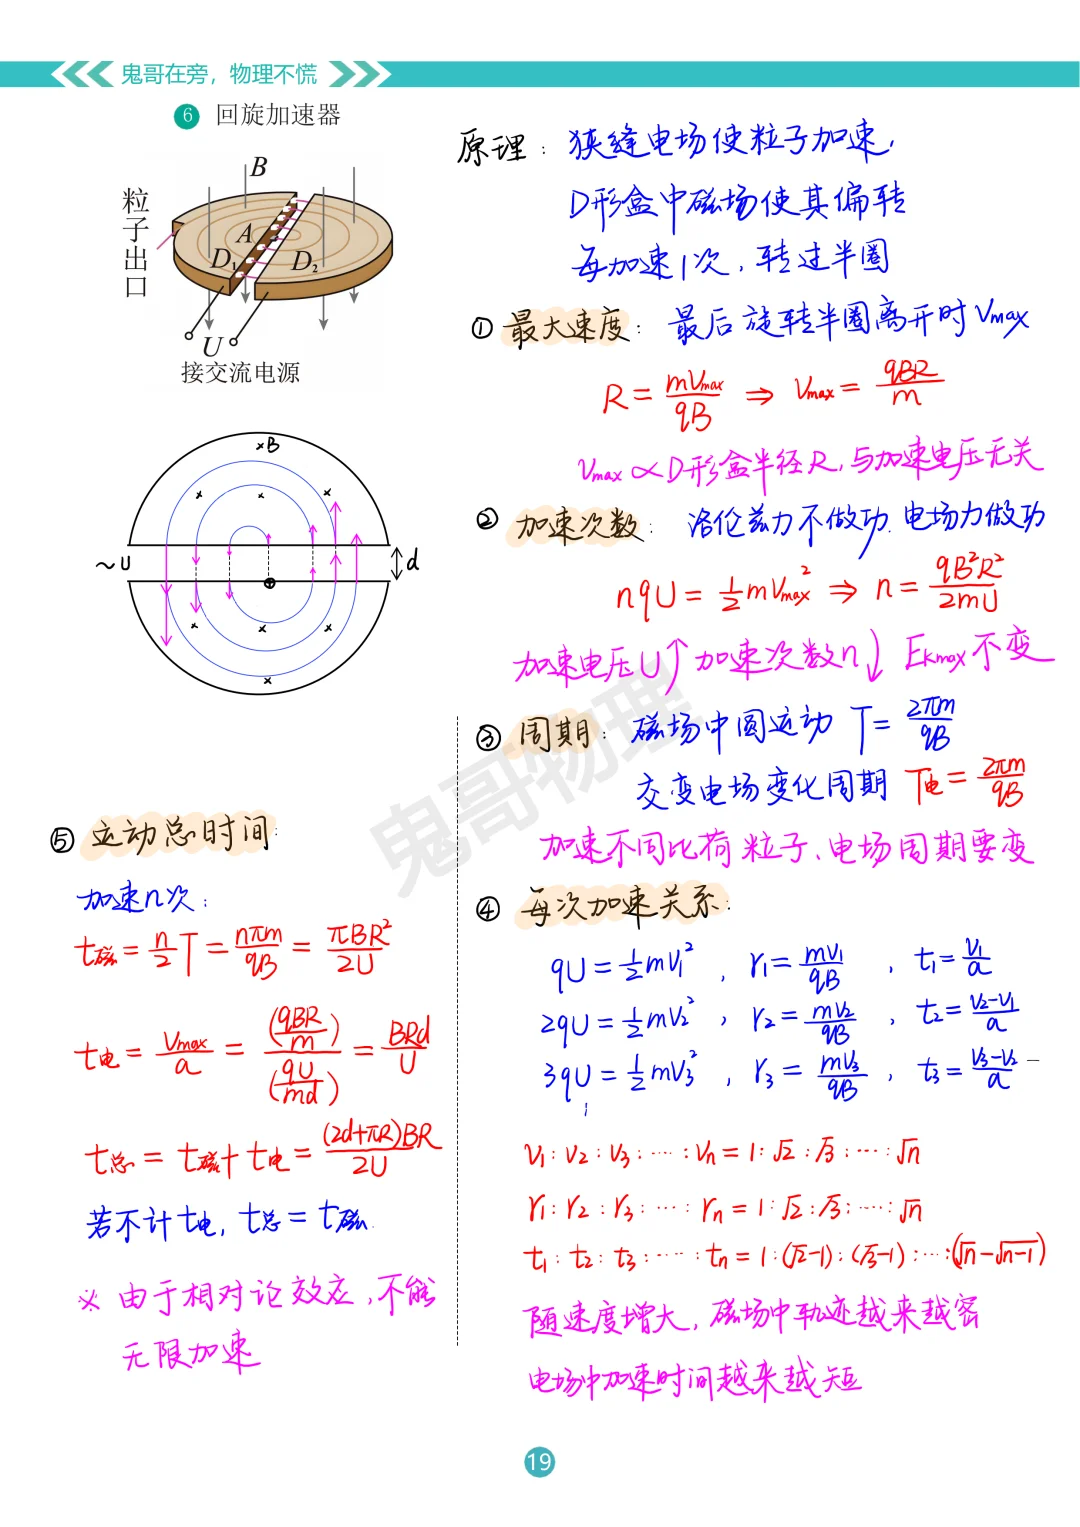 鬼哥在旁，物理不慌
6 回旋加速器
粒子出口
B
A
D₁
D₂
U
接交流电源
×B
~U
d
原理：狭缝电场使粒子加速，
D形盒中磁场使其偏转
每加速1次，转过半圈
① 最大速度：最后旋转半圈离开时 Vmax
R = mVmax/qB ⇒ Vmax = qBR/m
Vmax ∝ D形盒半径R，与加速电压无关
② 加速次数：洛伦兹力不做功，电场力做功
nqU = ½mVmax² ⇒ n = qB²R²/2mU
加速电压U↑加速次数n↓ Ekmax不变
③ 周期：磁场中圆运动 T = 2πm/qB
交变电场变化周期 T电 = 2πm/qB
加速不同比荷粒子、电场周期要变
④ 每次加速关系：
qU = ½mV₁² ， r₁ = mV₁/qB ， t₁ = V₁/a
2qU = ½mV₂² ， r₂ = mV₂/qB ， t₂ = (V₂-V₁)/a
3qU = ½mV₃² ， r₃ = mV₃/qB ， t₃ = (V₃-V₂)/a …
V₁:V₂:V₃:…:Vn = 1:√2:√3:…:√n
r₁:r₂:r₃:…:rn = 1:√2:√3:…:√n
t₁:t₂:t₃:…:tn = 1:(√2-1):(√3-1):…:(√n-√n-1)
随速度增大，磁场中轨迹越来越密
电场中加速时间越来越短
⑤ 运动总时间：
加速n次：
t磁 = n/2 T = nπm/qB = πBR²/2U
t电 = Vmax/a = (qBR/m)/(qU/md) = BRd/U
t总 = t磁 + t电 = (2d+πR)BR/2U
若不计t电，t总 = t磁.
※ 由于相对论效应，不能
无限加速
鬼哥物理
19